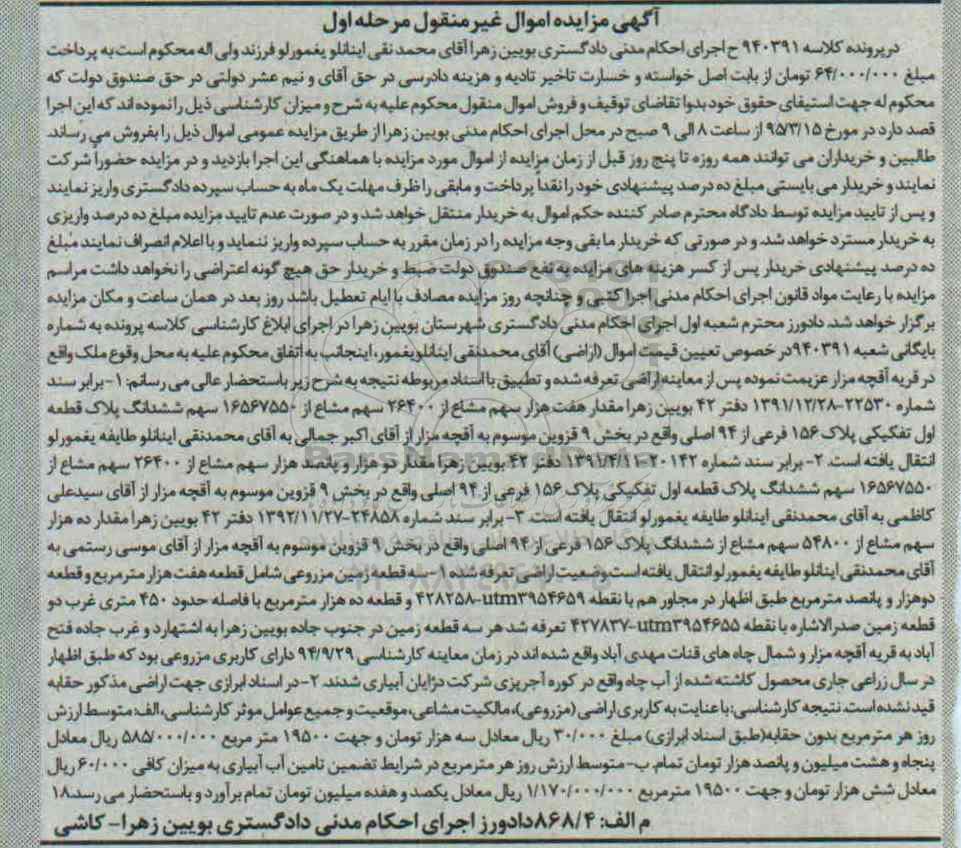 آگهی مزایده اموال غیر منقول مرحله اول
در پرونده کلاسه ۹۴۰۳۹۱ ح اجرای احکام مدنی دادگستری بویین زهرا آقای محمد نقی اینانلو یغمورلو فرزند ولی اله محکوم است به پرداخت
مبلغ ۶۴/۰۰۰/۰۰۰ تومان از بابت اصل خواسته و خسارت تاخیر تادیه و هزینه دادرسی در حق آقای و نیم عشر دولتی در حق صندوق دولت که
محکوم له جهت استیفای حقوق خود بدوا تقاضای توقیف و فروش اموال منقول محکوم علیه به شرح و میزان کارشناسی ذیل را نموده اند که این اجرا
قصد دارد در مورخ ۹۵/۳/۱۵ از ساعت ۸ الی ۹ صبح در محل اجرای احکام مدنی بویین زهرا از طریق مزایده عمومی اموال ذیل را بفروش می رساند.
طالبین و خریداران می توانند همه روزه تا پنج روز قبل از زمان مزایده از اموال مورد مزایده با هماهنگی این اجرا بازدید و در مزایده حضورا شرکت
نمایند و خریدار می بایستی مبلغ ده درصد پیشنهادی خود را نقدا پرداخت و مابقی را ظرف مهلت یک ماه به حساب سپرده دادگستری واریز نمایند
و پس از تایید مزایده توسط دادگاه محترم صادر کننده حکم اموال به خریدار منتقل خواهد شد و در صورت عدم تایید مزایده مبلغ ده درصد واریزی
به خریدار مسترد خواهد شد. و در صورتی که خریدار ما بقی وجه مزایده را در زمان مقرر به حساب سپرده واریز ننماید و با اعلام انصراف نمایند مبلغ
ده درصد پیشنهادی خریدار پس از کسر هزینه های مزایده به نفع صندوق دولت ضبط و خریدار حق هیچ گونه اعتراضی را نخواهد داشت مراسم
مزایده با رعایت مواد قانون اجرای احکام مدنی اجرا کتبی و چنانچه روز مزایده مصادف با ایام تعطیل باشد روز بعد در همان ساعت و مکان مزایده
برگزار خواهد شد. دادورز محترم شعبه اول اجرای احکام مدنی دادگستری شهرستان بویین زهرا در اجرای ابلاغ کارشناسی کلاسه پرونده به شماره
بایگانی شعبه ۹۴۰۳۹۱ در خصوص تعیین قیمت اموال (اراضی) آقای محمدنقی اینانلو یغمور، اینجانب به اتفاق محکوم علیه به محل وقوع ملک واقع
در قریه آقچه مزار عزیمت نموده پس از معاینه اراضی تعرفه شده و تطبیق با اسناد مربوطه نتیجه به شرح زیر باستحضار عالی می رسانم: ۱- برابر سند
شماره ۲۲۵۳۰-۱۳۹۱/۱۲/۲۸ دفتر ۴۲ بویین زهرا مقدار هفت هزار سهم مشاع از ۲۶۴۰۰ سهم مشاع از ۱۶۵۶۷۵۵۰ سهم ششدانگ پلاک قطعه
اول تفکیکی پلاک ۱۵۶ فرعی از ۹۴ اصلی واقع در بخش ۹ قزوین موسوم به آقچه مزار از آقای اکبر جمالی به آقای محمدنقی اینانلو طایفه یغمورلو
انتقال یافته است. ۲- برابر سند شماره ۲۰۱۴۲-۱۳۹۱/۴/۱۱ دفتر ۴۲ بویین زهرا مقدار دو هزار و پانصد هزار سهم مشاع از ۲۶۴۰۰ سهم مشاع از
۱۶۵۶۷۵۵۰ سهم ششدانگ پلاک قطعه اول تفکیکی پلاک ۱۵۶ فرعی از ۹۴ اصلی واقع در بخش ۹ قزوین موسوم به آقچه مزار از آقای سیدعلی
کاظمی به آقای محمدنقی اینانلو طایفه یغمورلو انتقال یافته است. ۳- برابر سند شماره ۲۴۸۵۸-۱۳۹۲/۱۱/۲۷ دفتر ۴۲ بویین زهرا مقدار ده هزار
سهم مشاع از ۵۴۸۰۰ سهم مشاع از ششدانگ پلاک ۱۵۶ فرعی از ۹۴ اصلی واقع در بخش ۹ قزوین موسوم به آقچه مزار از آقای موسی رستمی به
آقای محمدنقی اینانلو طایفه یغمورلو انتقال یافته است وضعیت اراضی تعرفه شده ۱- سه قطعه زمین مزروعی شامل قطعه هفت هزار مترمربع و قطعه
دوهزار و پانصد مترمربع طبق اظهار در مجاور هم با نقطه utm۳۹۵۴۶۵۹-۴۲۸۲۵۸ و قطعه ده هزار مترمربع با فاصله حدود ۴۵۰ متری غرب دو
قطعه زمین صدرالاشاره با نقطه utm۳۹۵۴۶۵۵-۴۲۷۸۳۷ تعرفه شد هر سه قطعه زمین در جنوب جاده بویین زهرا به اشتهارد و غرب جاده فتح
آباد به قریه آقچه مزار و شمال چاه های قنات مهدی آباد واقع شده اند در زمان معاینه کارشناسی ۹۴/۹/۲۹ دارای کاربری مزروعی بود که طبق اظهار
در سال زراعی جاری محصول کاشته شده از آب چاه واقع در کوره آجرپزی شرکت دژابان آبیاری شدند. ۲- در اسناد ابرازی جهت اراضی مذکور حقابه
قید نشده است. نتیجه کارشناسی: با عنایت به کاربری اراضی (مزروعی)، مالکیت مشاعی، موقعیت و جمیع عوامل موثر کارشناسی، الف: متوسط ارزش
روز هر مترمربع بدون حقابه (طبق اسناد ابرازی) مبلغ ۳۰/۰۰۰ ریال معادل سه هزار تومان و جهت ۱۹۵۰۰ متر مربع ۵۸۵/۰۰۰/۰۰۰ ریال معادل
پنجاه و هشت میلیون و پانصد هزار تومان تمام. ب- متوسط ارزش روز هر مترمربع در شرایط تضمین تامین آب آبیاری به میزان کافی ۶۰/۰۰۰ ریال
معادل شش هزار تومان و جهت ۱۹۵۰۰ مترمربع ۱/۱۷۰/۰۰۰/۰۰۰ ریال معادل یکصد و هفده میلیون تومان تمام برآورد و باستحضار می رسد.۱۸
م الف: ۸۶۸/۴ دادورز اجرای احکام مدنی دادگستری بویین زهرا- کاشی